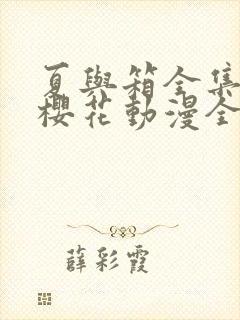 夏與箱全集
櫻花動漫全
薛彩霞